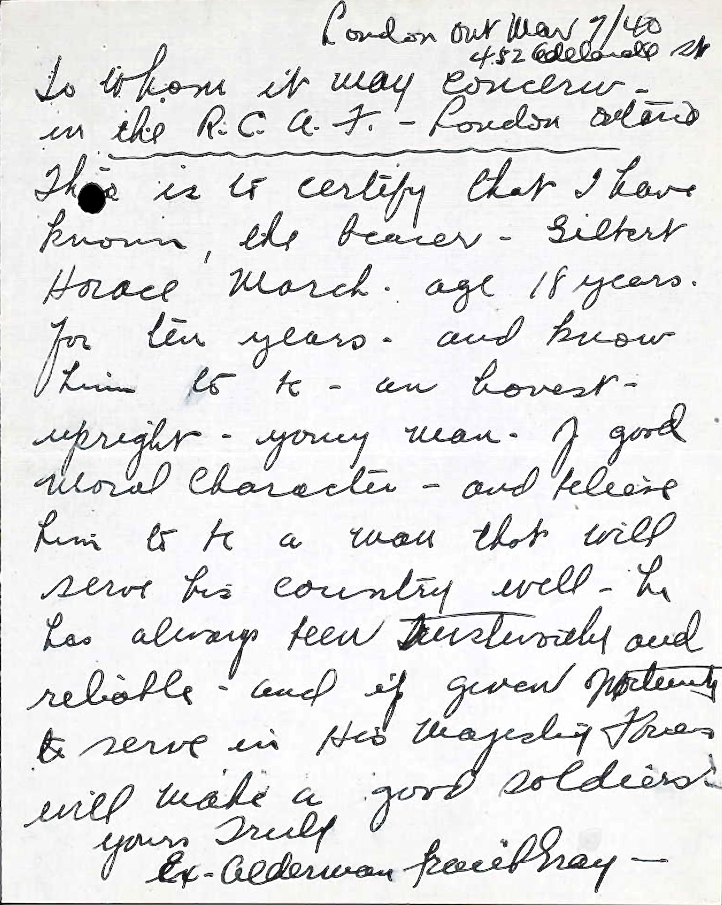 London Ont Mar 7/40
482 Adelaide St
To whom it may concern -
in the R.C.A.F. - London Ontario
This is to certify that I have
known, the bearer - Gilbert
Horace March. age 18 years.
for ten years - and know
him to be - an honest -
upright - young man. of good
moral Character - and believe
him to be a man that will
serve his country well - he
has always been trustworthy and
reliable - and if given oportunity
to serve in His Majesty Forces
will make a good soldiers
yours Truly
Ex-Alderman Gray -